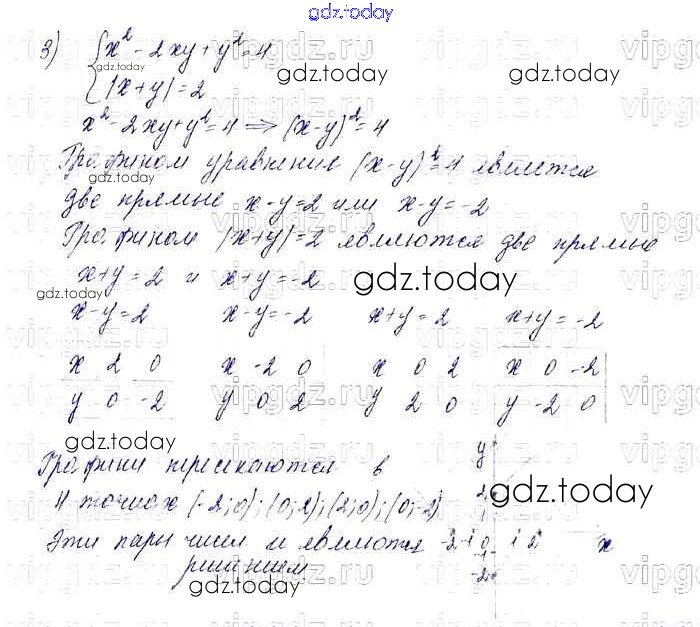 gdz.today
3) { x² - 2xy + y² = 4
|x+y| = 2
gdz.today
x² - 2xy + y² = 4 ⟹ (x-y)² = 4
Графиком уравнения (x-y)² = 4 является
две прямые x-y=2 или x-y=-2
Графиком |x+y|=2 являются две прямые
x+y=2 и x+y=-2
gdz.today
x-y=2 x-y=-2 x+y=2 x+y=-2
x 2 0 x -2 0 x 0 2 x 0 -2
y 0 -2 y 0 2 y 2 0 y -2 0
gdz.today
Графики пересекаются в
4 точках (-2;0); (0;2); (2;0); (0;-2)
Эти пары чисел и являются
решением
gdz.today
y
2
1
-2 -1 0 1 2 x
-1
-2
gdz.today
vipgdz.ru